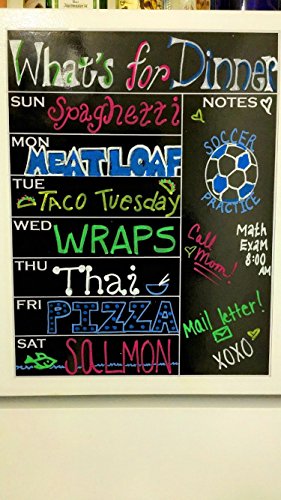 What's for Dinner
SUN Spaghetti
MON MEATLOAF
TUE TACO TUESDAY
WED WRAPS
THU Thai
FRI PIZZA
SAT SALMON
NOTES
SOCCER
PRACTICE
Call
Mom!
Math
Exam
8:00
AM
Mail letter!
XOXO